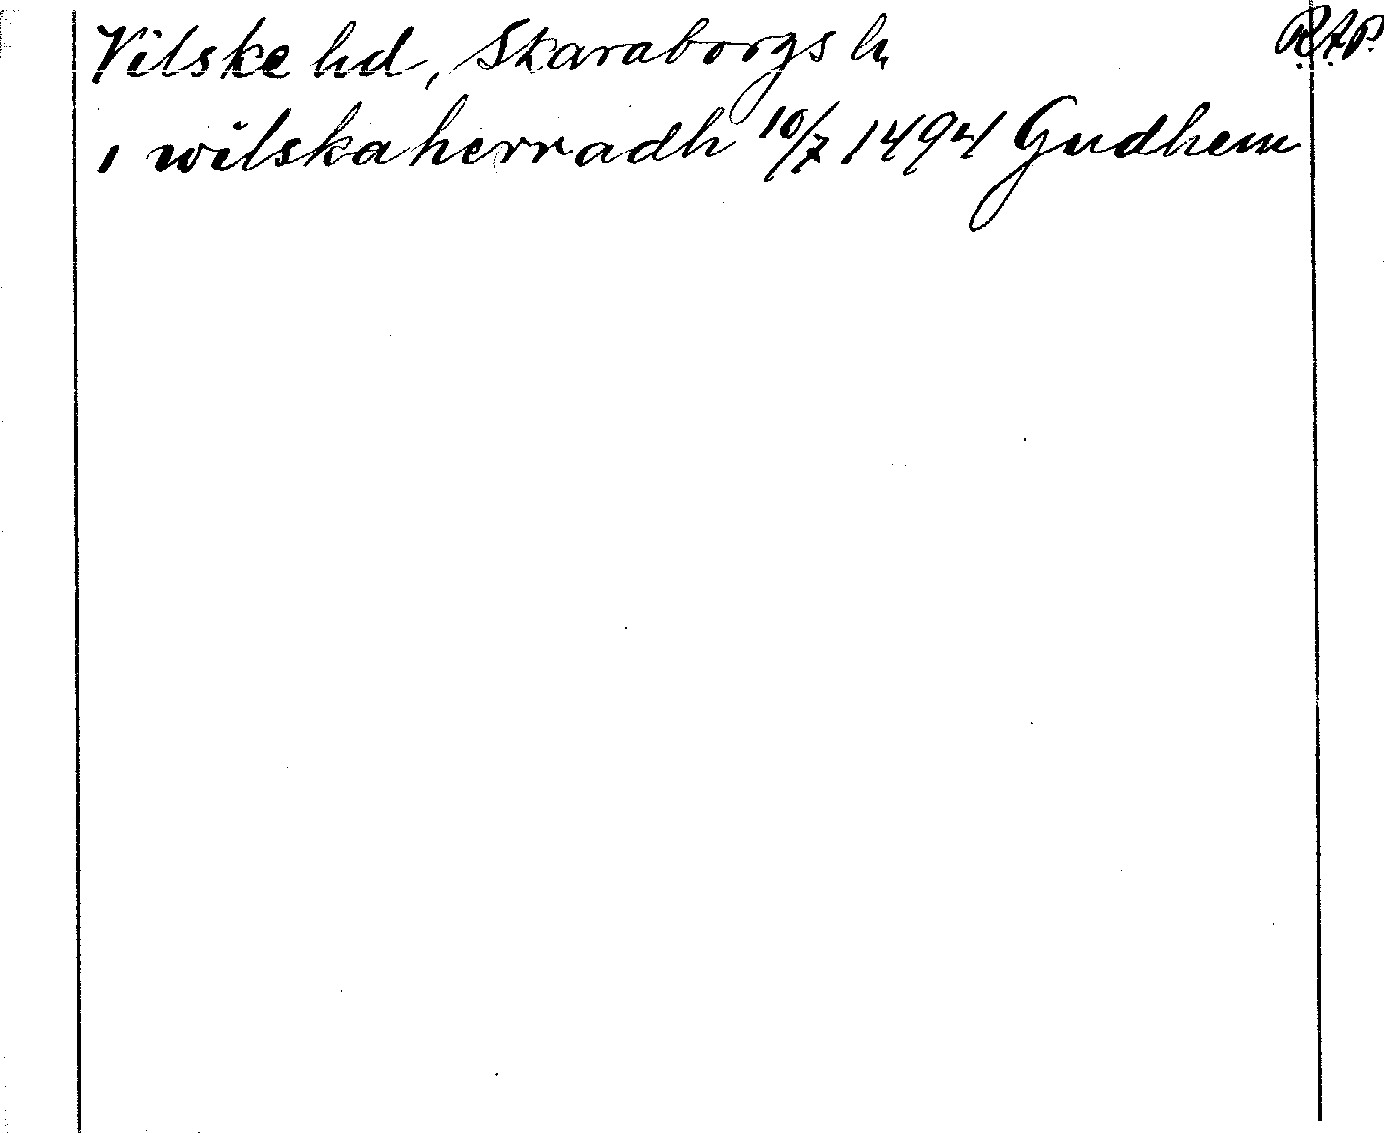 Vilske hd, Skaraborgs ln R.A.P.
ı wilskaherradh 10/7 1494 Gudhem